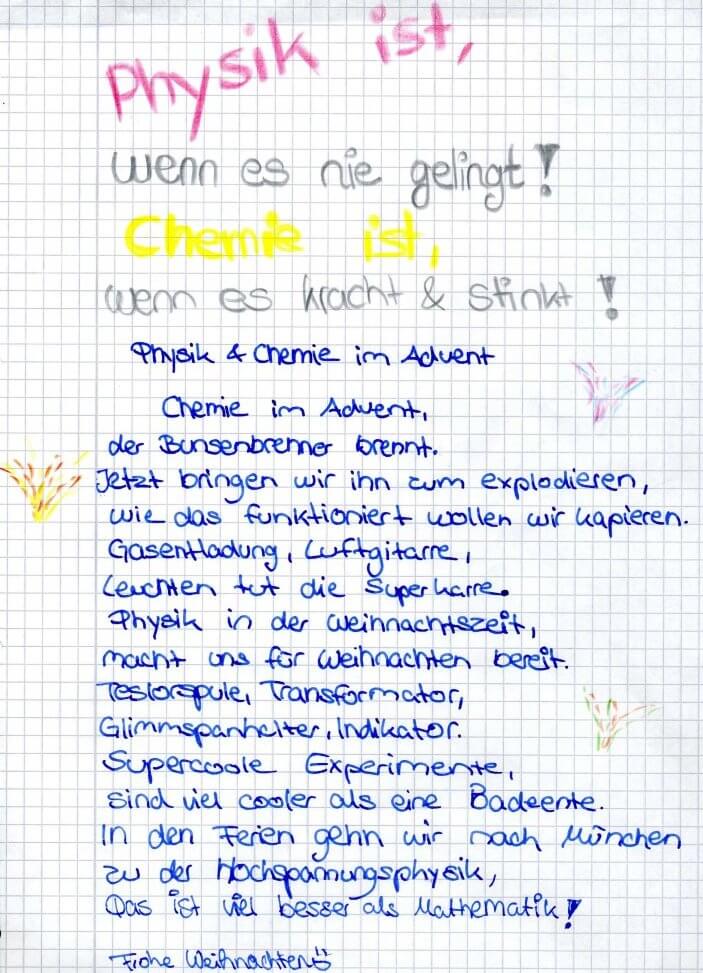 Physik ist,
wenn es nie gelingt!
Chemie ist,
wenn es kracht & stinkt!
Physik & Chemie im Advent
Chemie im Advent,
der Bunsenbrenner brennt.
Jetzt bringen wir ihn zum explodieren,
wie das funktioniert wollen wir kapieren.
Gasentladung, Luftgitarre,
Leuchten tut die Superkarre.
Physik in der Weihnachtszeit,
macht uns für Weihnachten bereit.
Teslorspule, Transformator,
Glimmspanhalter, Indikator.
Supercoole Experimente,
sind viel cooler als eine Badeente.
In den Ferien gehn wir nach München
zu der Hochspannungsphysik,
Das ist viel besser als Mathematik!
Frohe Weihnachten